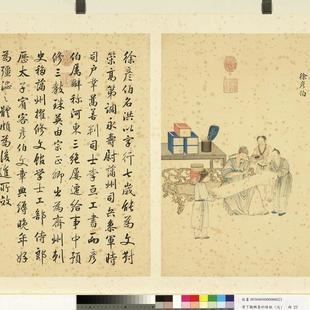 徐彥伯
徐彥伯名洪以字行七歲能為文對
策高第調永壽尉蒲州司兵參軍時
司戶韋暠善判司士李亘工書而彥
伯屬辭稱河東三絕屢遷給事中預
修三教珠英由宗正卿出為齊州刺
史移蒲州擢修文館學士工部侍郎
歷太子賓客彥伯文章典縟晚年好
為强澀之體頗為後進所效